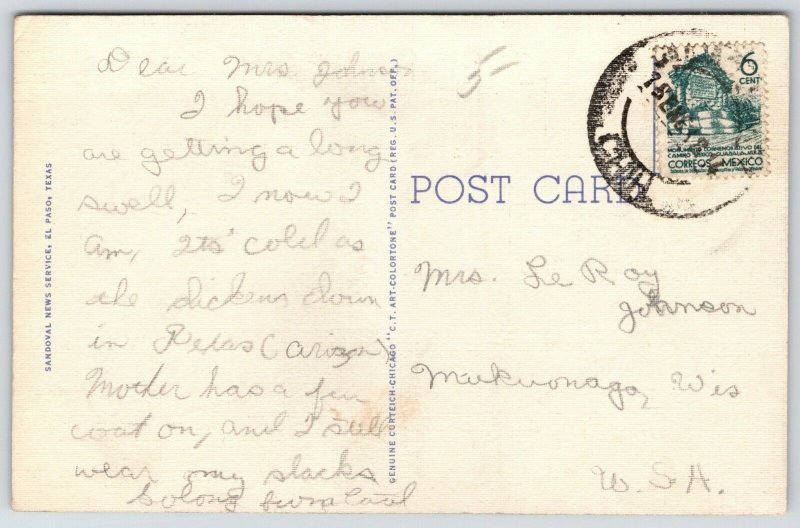 Dear Mrs. Johnson
I hope you
are getting a long
swell, I now I
am, Its' cold as
the dickens down
in Texas (
Mother has a fur
coat on, and I still
wear my slacks
So long
5-
6
CENT
CORREOS MEXICO
CHIH
POST CARD
Mrs. Le Roy
Johnson
Mukwonago, Wis
U. S. A.
SANDOVAL NEWS SERVICE, EL PASO, TEXAS
GENUINE CURTEICH-CHICAGO "C. T. ART-COLORTONE" POST CARD (REG. U. S. PAT. OFF.)